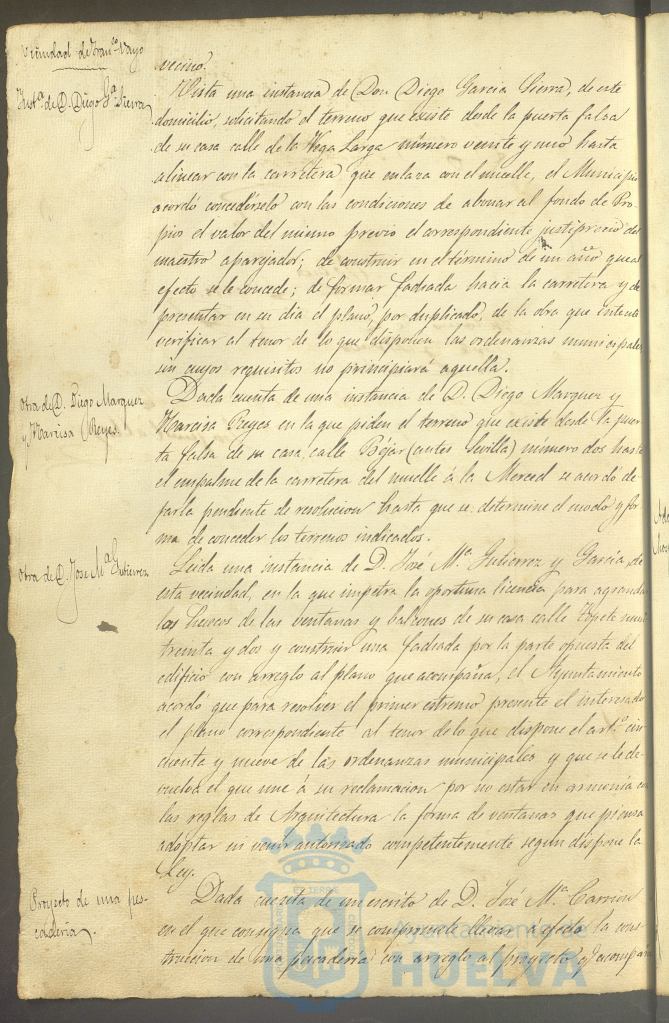 Vecindad de Franco Mayo
vecino.
Inst.a de D. Diego G.a Sierra
Vista una instancia de Don Diego Garcia Sierra, de este
domicilio, solicitando el terreno que existe desde la puerta falsa
de su casa calle de la Vega Larga número veinte y uno hasta
alinear con la carretera que enlaza con el muelle, el Municipio
acordó concedérselo con las condiciones de abonar al fondo de Pro-
pios el valor del mismo previo el correspondiente justiprecio del
maestro aparejador; de construir en el término de un año que al
efecto se le concede; de formar fachada hacia la carretera y de
presentar en su dia el plano, por duplicado, de la obra que intenta
verificar al tenor de lo que disponen las ordenanzas municipales
sin cuyos requisitos no principiará aquella.
Otra de D. Diego Marquez
y Narcisa Reyes.
Dada cuenta de una instancia de D. Diego Marquez y
Narcisa Reyes en la que piden el terreno que existe desde la puer-
ta falsa de su casa, calle Béjar (antes Sevilla) número dos hasta
el empalme de la carretera del muelle á la Merced se acordó de-
jarla pendiente de resolucion hasta que se determine el modo y for-
ma de conceder los terrenos indicados.
Otra de D. Jose M.a Gutierrez
Leida una instancia de D. José M.a Gutierrez y Garcia, de
esta vecindad, en la que impetra la oportuna licencia para agrandar
los huecos de las ventanas y balcones de su casa calle Topete num.
treinta y dos y construir una fachada por la parte opuesta del
edificio con arreglo al plano que acompaña, el Ayuntamiento
acordó que para resolver el primer estremo presente el interesado
el plano correspondiente al tenor de lo que dispone el art.o cin-
cuenta y nueve de las ordenanzas municipales y que se le de-
vuelva el que une á su reclamacion por no estar en armonía con
las reglas de Arquitectura la forma de ventanas que piensa
adoptar ni venir autorizado competentemente segun dispone la
Ley.
Proyecto de una pes-
cadería.
Dada cuenta de un escrito de D. José M.a Carrion
en el que consigna que se compromete llevar á efecto la cons-
truccion de una pescadería con arreglo al proyecto q. acompaña
Ayuntamiento de
HUELVA